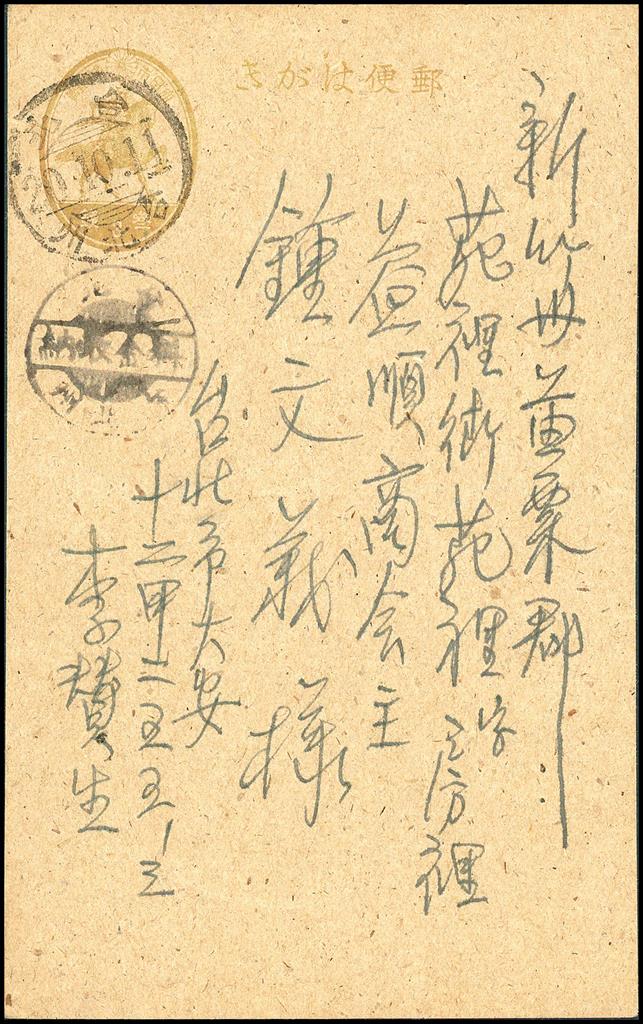 郵便はがき
新竹州苗栗郡
苑裡街苑裡字房裡
益順商会主
鍾文義様
台北市大安
十二甲二五五ノ三
李贊生
20.10.11
台北